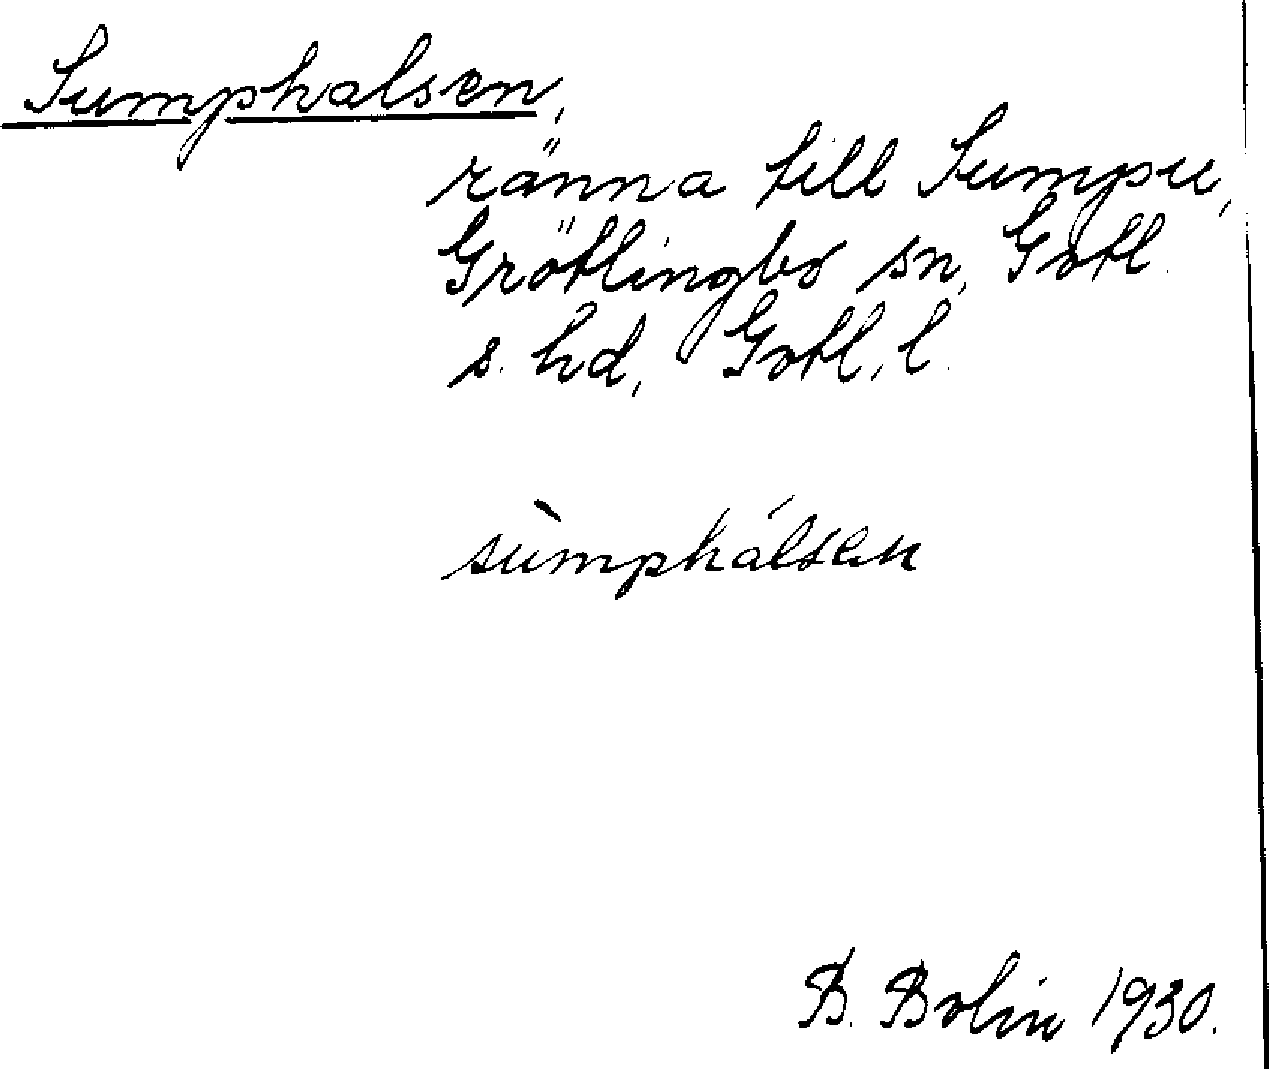 Sumphalsen,
ränna till Sumpu,
Grötlingbo sn, Gotl.
s. hd, Gotl. l.
sùmphálsen
B. Bolin 1930.